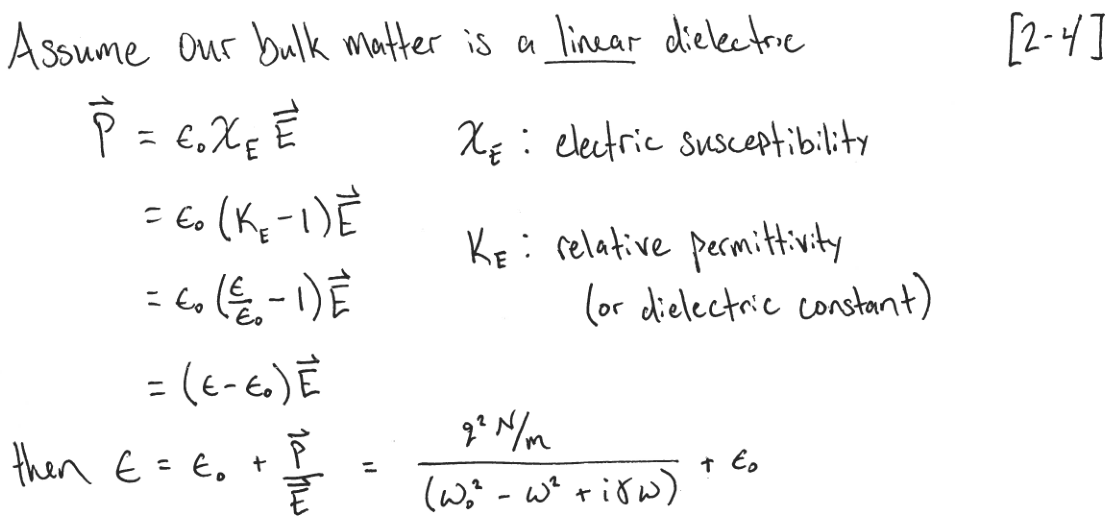 Assume our bulk matter is a linear dielectric [2-4]
P⃗ = ε₀χ_E E⃗ χ_E : electric susceptibility
= ε₀(K_E - 1)E⃗
K_E : relative permittivity
= ε₀(ε/ε₀ - 1)E⃗ (or dielectric constant)
= (ε - ε₀)E⃗
then ε = ε₀ + P⃗/E⃗ = (q² N/m)/(ω₀² - ω² + iγω) + ε₀